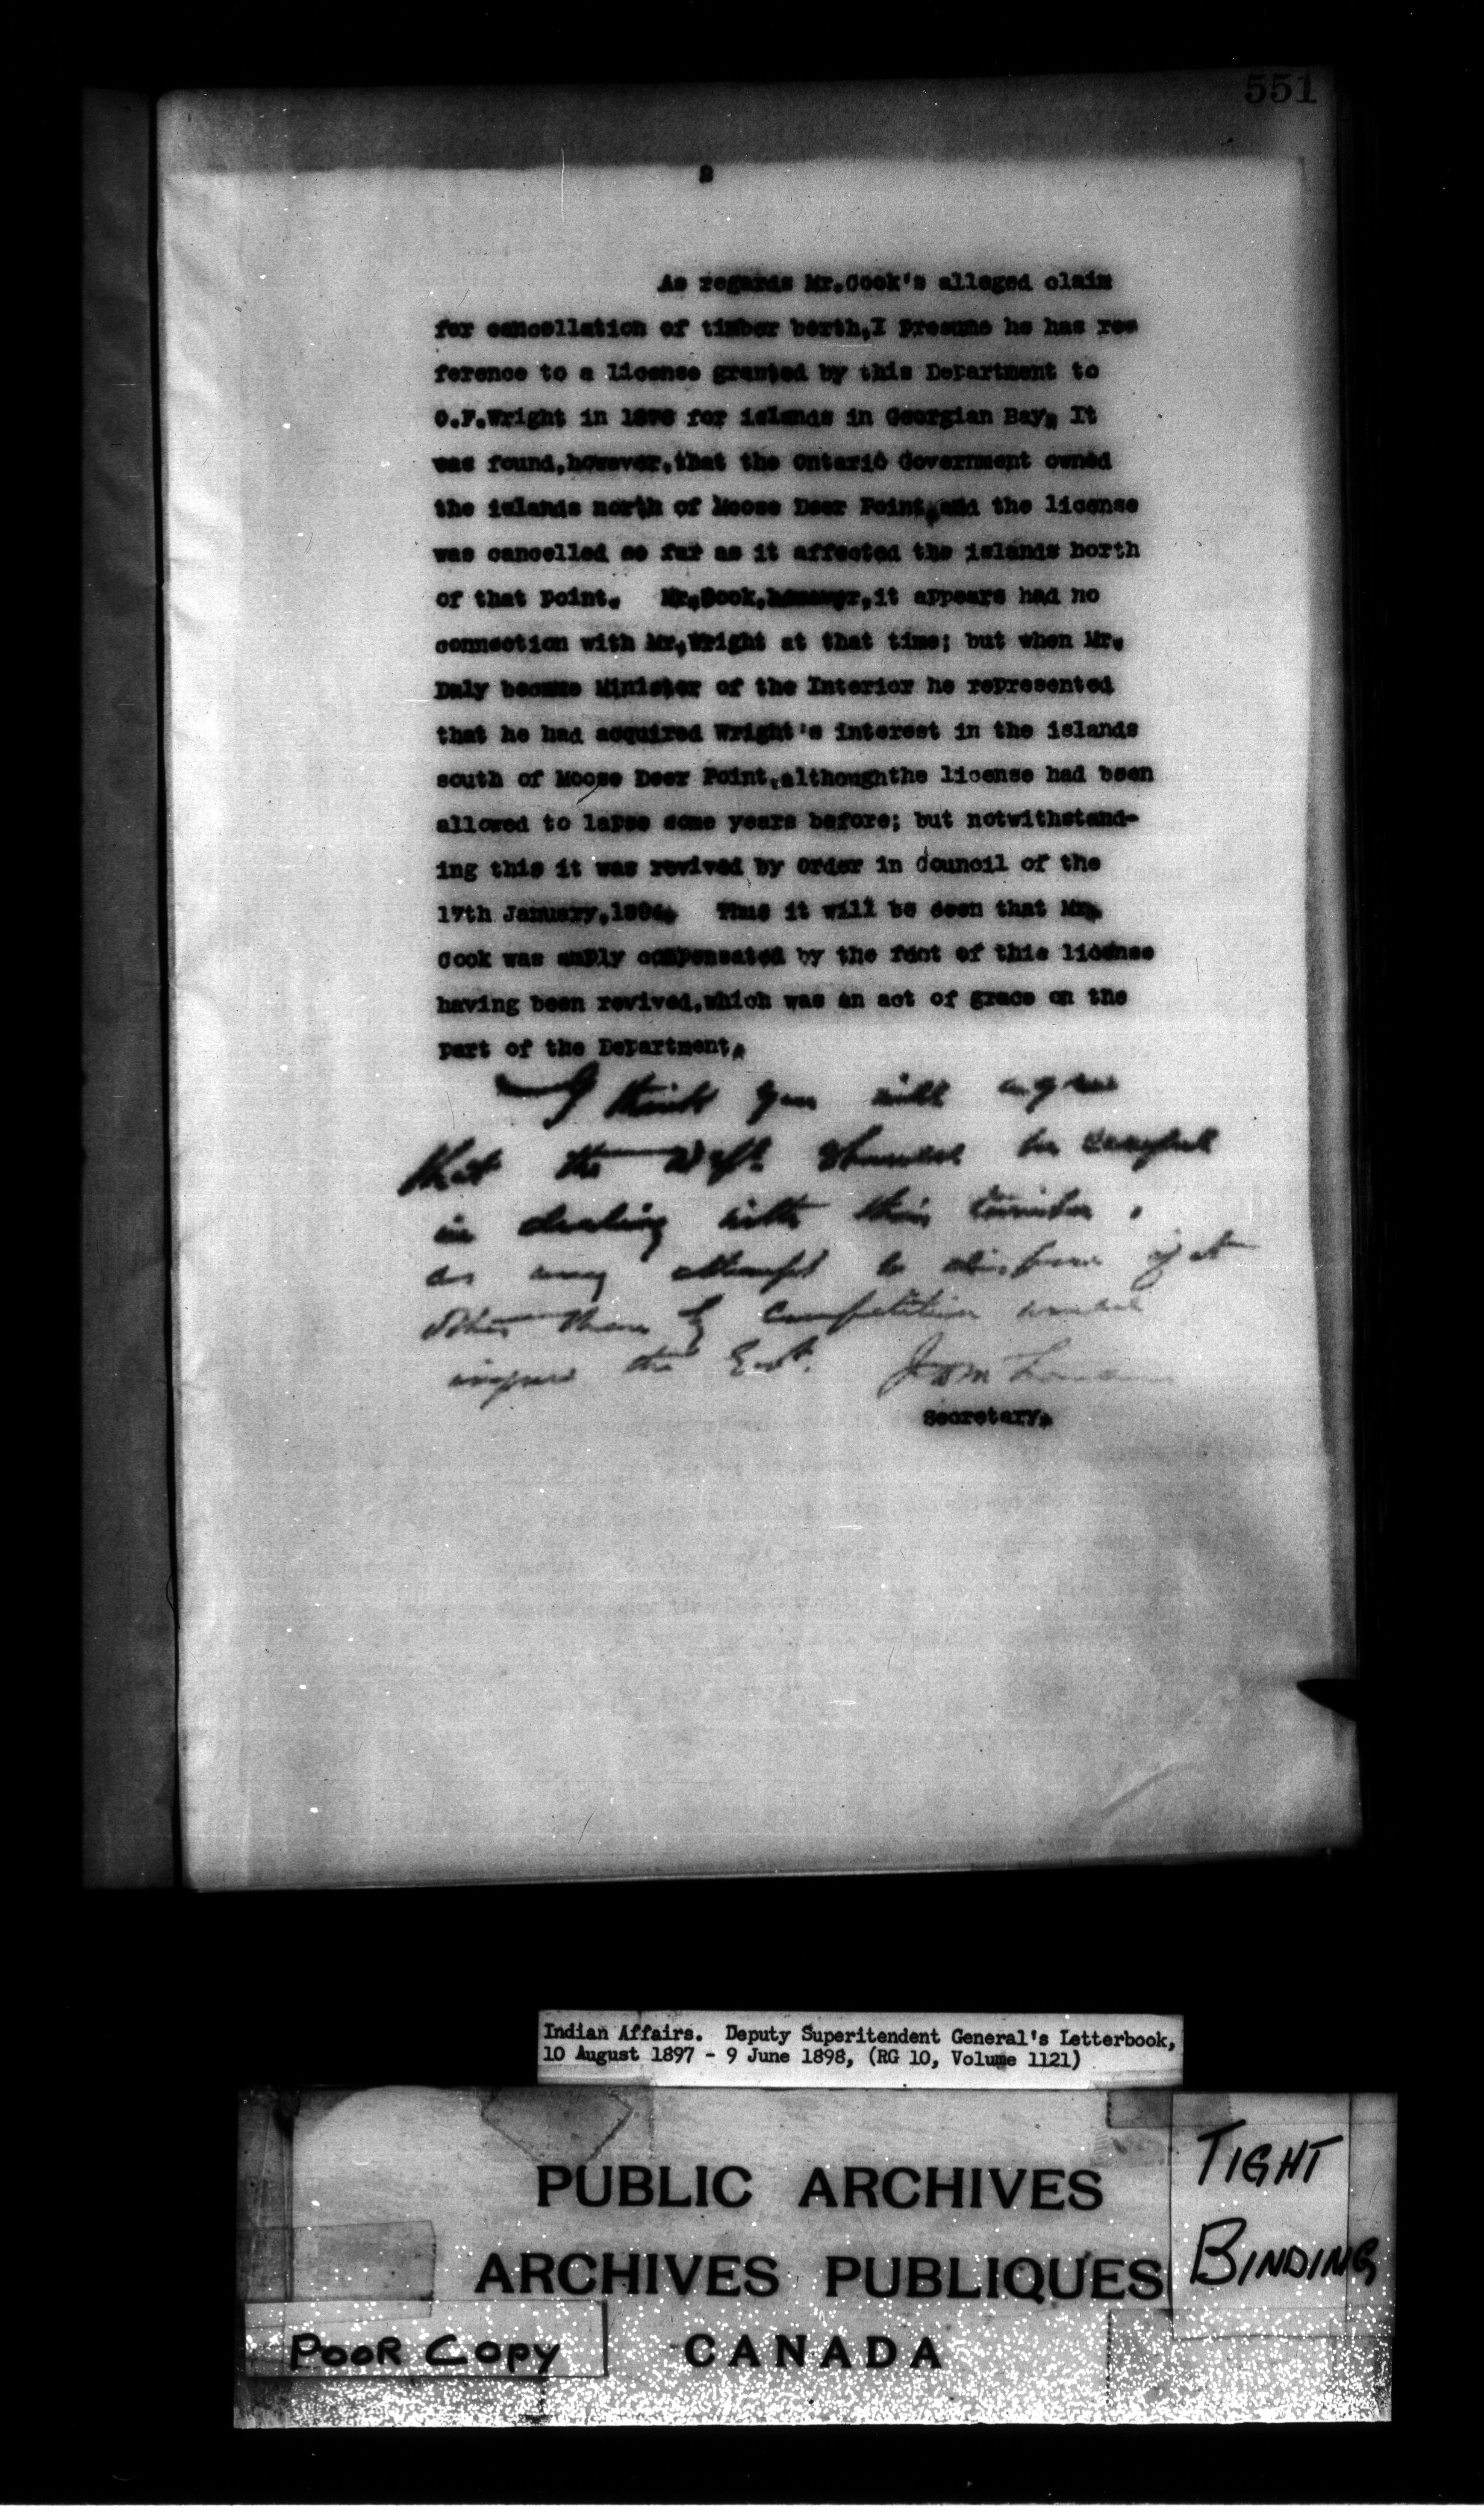 551
2
As regards Mr.Cook's alleged claim
for cancellation of timber berth,I presume he has re-
ference to a license granted by this Department to
C.F.Wright in for islands in Georgian Bay. It
was found,however,that the Ontario Government owned
the islands north of Moose Deer Point,and the license
was cancelled so far as it affected the islands north
of that point. Mr.Cook,however,it appears had no
connection with Mr.Wright at that time; but when Mr.
Daly became Minister of the Interior he represented
that he had acquired Wright's interest in the islands
south of Moose Deer Point,althoughthe license had been
allowed to lapse some years before; but notwithstand-
ing this it was revived by Order in Council of the
17th January,1894. Thus it will be seen that Mr.
Cook was amply compensated by the fact of this license
having been revived,which was an act of grace on the
part of the Department.
I think you will agree
that the Dept. should be careful
in dealing with this timber,
as any attempt to dispose of it
other than by competition would
injure the Govt.
Secretary.
Indian Affairs. Deputy Superitendent General's Letterbook,
10 August 1897 - 9 June 1898, (RG 10, Volume 1121)
PUBLIC ARCHIVES
ARCHIVES PUBLIQUES
CANADA
TIGHT
BINDING
POOR COPY